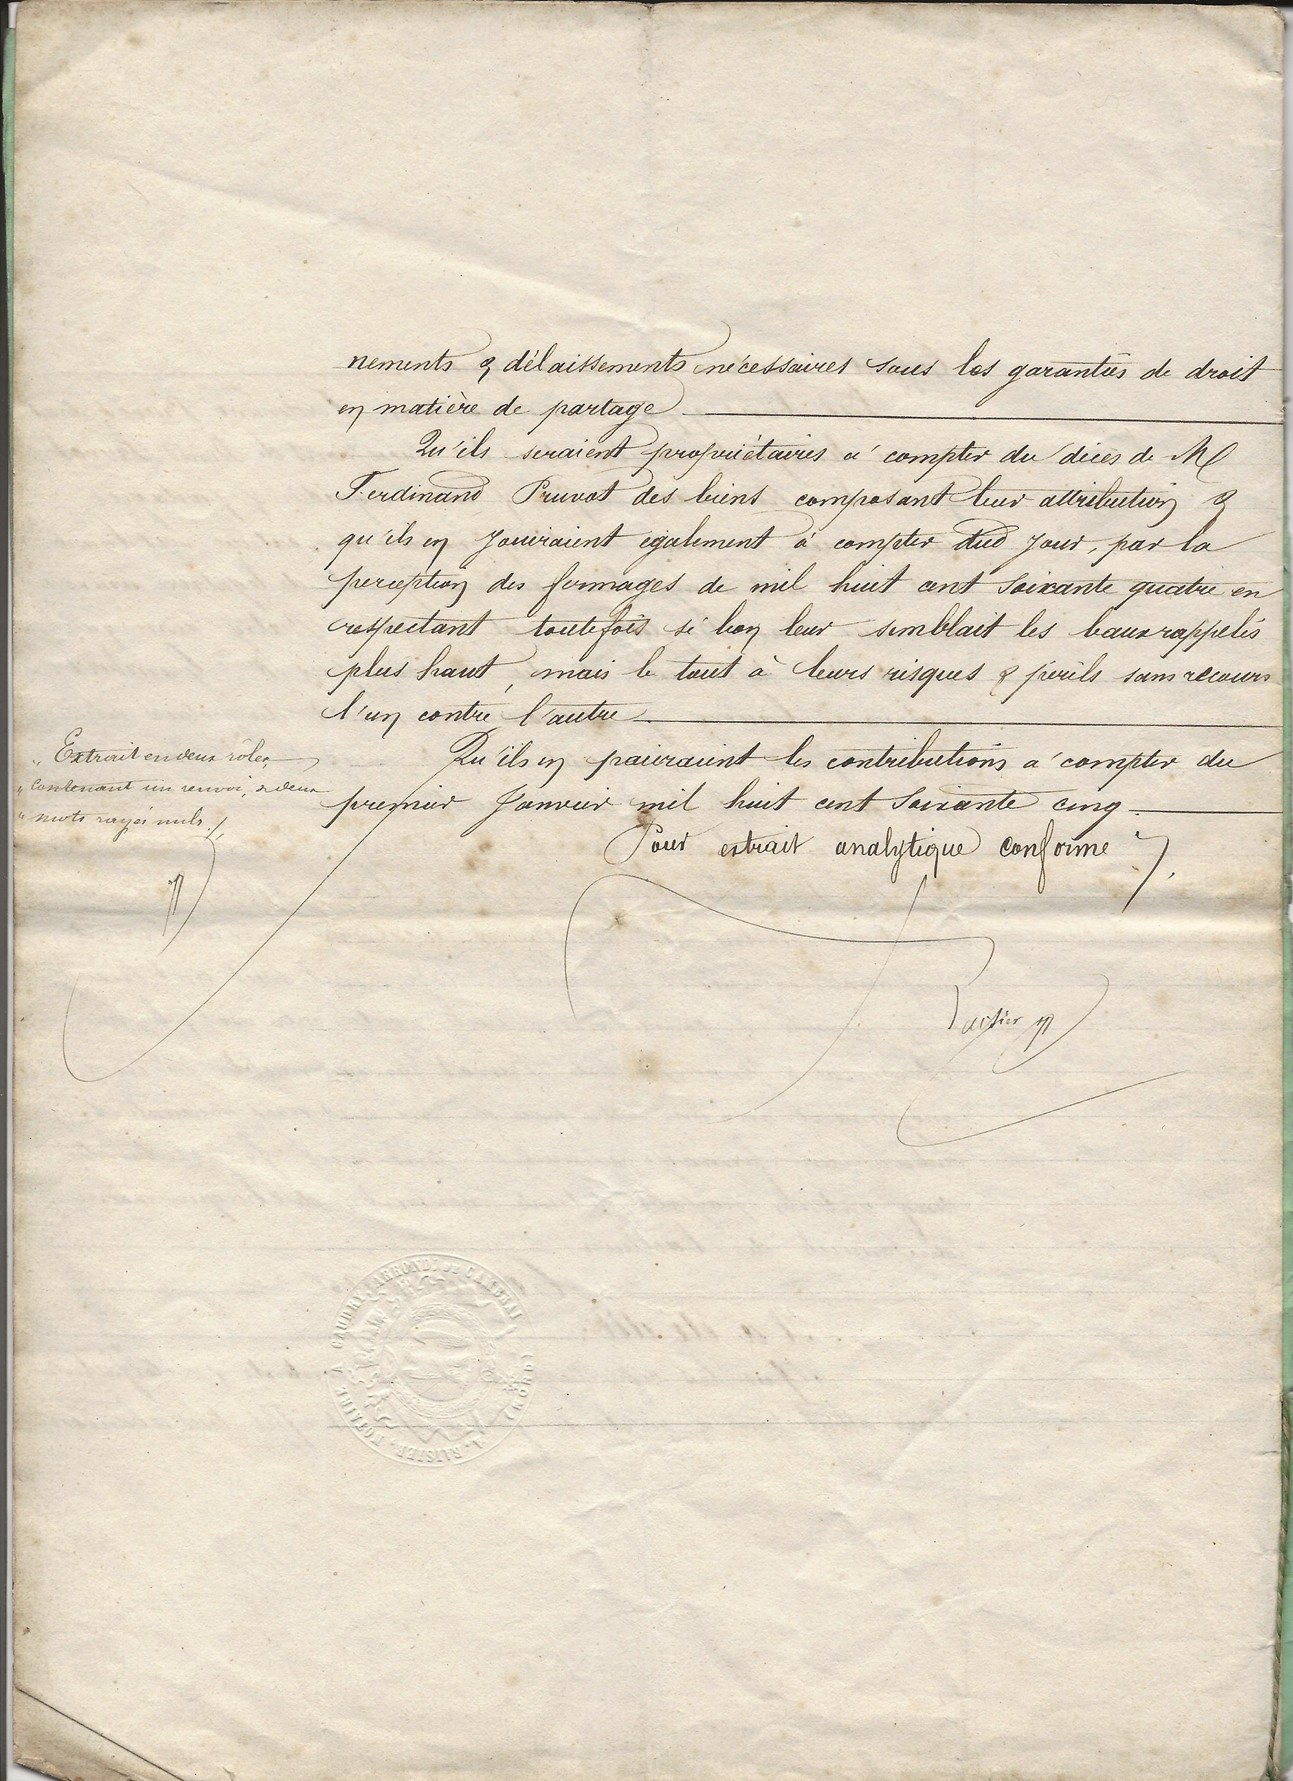 nements & délaissements nécessaires sous les garanties de droit
en matière de partage
Qu'ils seraient propriétaires à compter du décès de M
Ferdinand Pruvot des biens composant leur attribution &
qu'ils en jouiraient également à compter dud jour, par la
perception des fermages de mil huit cent soixante quatre en
respectant toutefois si bon leur semblait les baux rappelés
plus haut, mais le tout à leurs risques & périls sans recours
l'un contre l'autre.
Qu'ils en paieraient les contributions à compter du
premier Janvier mil huit cent soixante cinq.
Pour extrait analytique conforme
" Extrait en deux rôles,
" contenant un renvoi, & deux
" mots rayés nuls
Ratsier
A. RATSIER, NOTAIRE A CAUDRY, ARRONDt DE CAMBRAI (NORD)